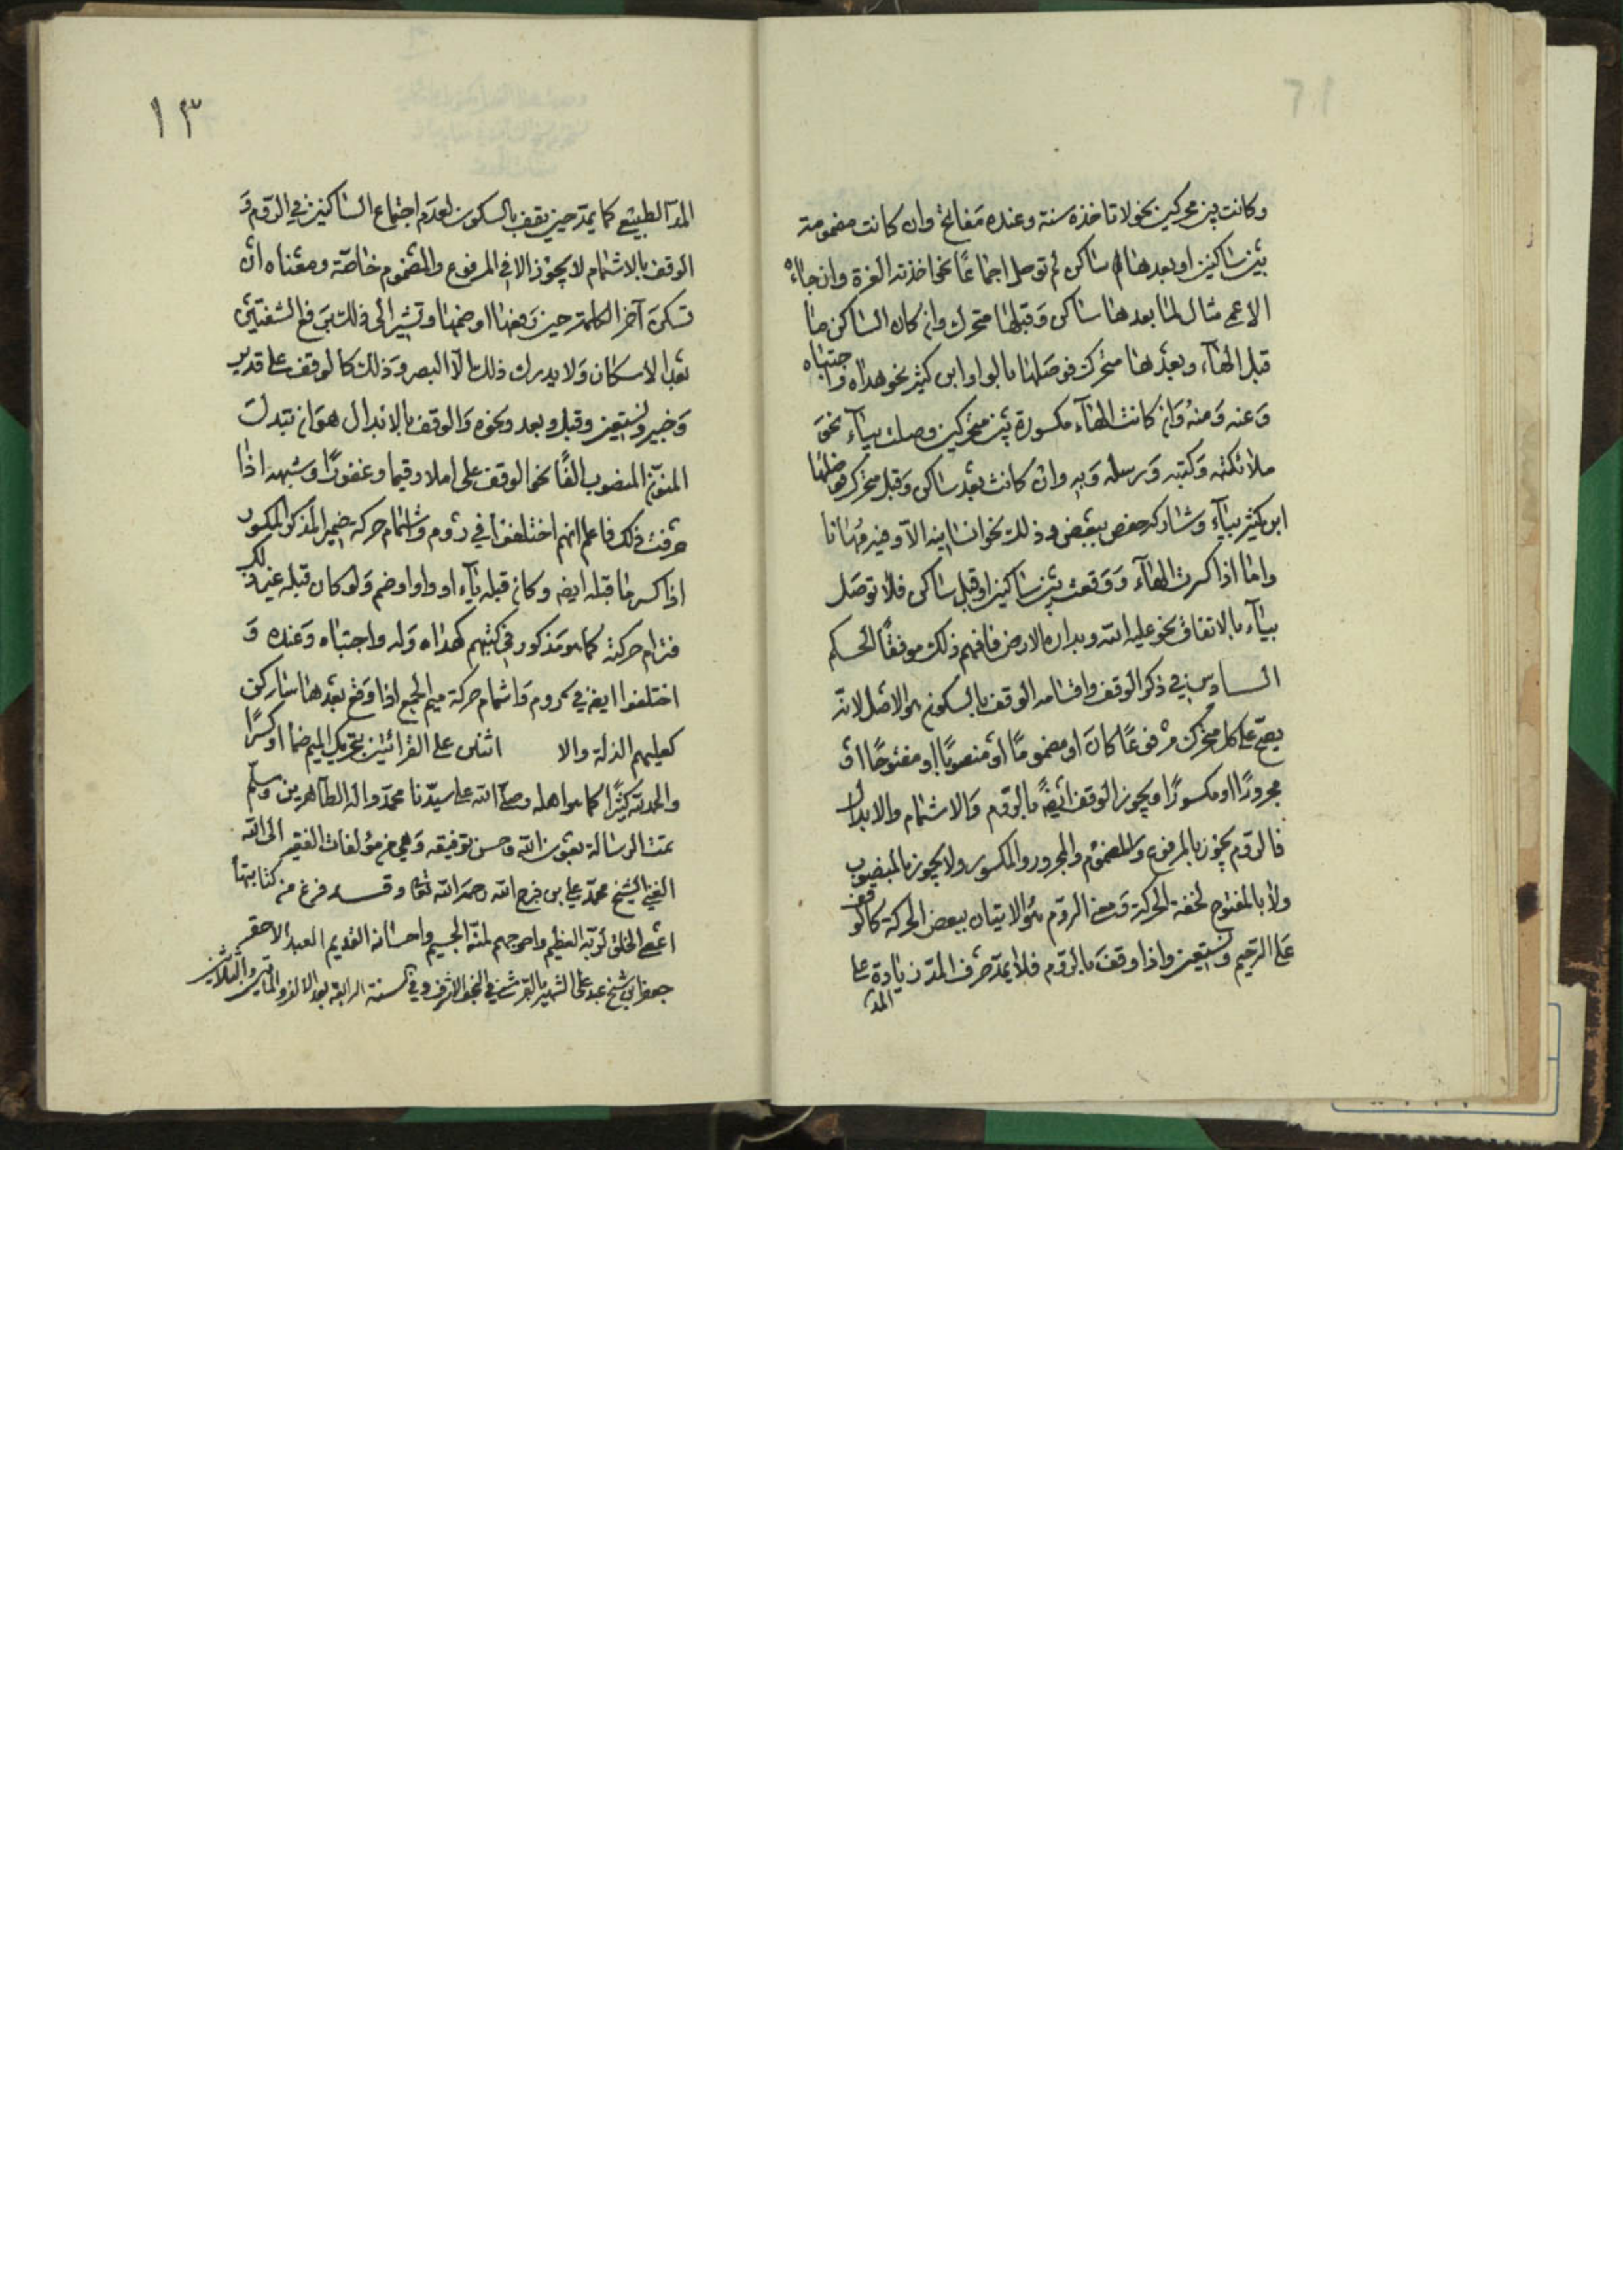 وكانت بين محركين نحو لا تاخذه سنة وعنده مفاتح وان كانت مضمومة
بين ساكنين او بعدها ساكن لم توصل اجماعًا نحو اخذته العزة وان جاءه
الاعمى مثال لما بعدها ساكن وقبلها متحرك وان كان الساكن ما
قبل الهآء وبعدها متحرك فوصلها بالواو ابن كثير نحو هداه واجتباه
وعنه ومنه وان كانت الهآء مكسورة بين متحركين وصلت بيآء نحو
ملائكته وكتبه ورسله وبه وان كانت بعد ساكن وقبل متحرك فوصلها
ابن كثير بيآء وشاركه حفص ببعض وذلك نحو انسانيه الا وفيه مهانا
واما اذا كسرت الهآء ووقعت بين ساكنين او قبل ساكن فلا توصل
بيآء بالاتفاق نحو عليه الله وبداره الارض فافهم ذلك موفقًا الحكم
السادس في ذكر الوقف واقسامه الوقف بالسكون هو الاصل لانه
يصح على كل متحرك مرفوعًا كان او مضمومًا او منصوبًا او مفتوحًا او
مجرورًا او مكسورًا ويجوز الوقف ايضًا بالروم والاشمام والابدال
فالروم يجوز بالمرفوع والمضموم والمجرور والمكسور ولا يجوز بالمنصوب
ولا بالمفتوح لخفة الحركة ومعنى الروم هو الاتيان ببعض الحركة كالوقف
على الرحيم ونستعين واذا وقف بالروم فلا يمد حرف المد زيادة على
المد
١٣
المد الطبيعي كما يمد حين يقف بالسكون لعدم اجتماع الساكنين في الروم و
الوقف بالاشمام لا يجوز الا في المرفوع والمضموم خاصّة ومعناه ان
تسكن آخر الكلمة حين رفعها او ضمها وتشير الى ذلك بين الشفتين
بعد الاسكان ولا يدرك ذلك الا البصر وذلك كالوقف على قدير
وخبير ونستعين وقبل وبعد ونحوه والوقف بالابدال هو ان تبدل
المنوّن المنصوب الفًا نحو الوقف على املا وقيما وغفورًا وشبهه اذا
عرفت ذلك فاعلم انهم اختلفوا في روم واشمام حركة ضمير المذكر المكسور
اذا كسر ما قبله ايضا وكان قبله يآء او واو او ضم ولو كان قبله غير ذلك
فترام حركته كما هو مذكور في كتبهم كهداه وله واجتباه وعنده و
اختلفوا ايضا في روم واشمام حركة ميم الجمع اذا وقع بعدها ساكن
كعليهم الذلة والا اثنان على القرائتين بتحريك الميم ضمًا او كسرًا
والحمد لله كثيرًا كما هو اهله وصلى الله على سيّدنا محمّد واله الطاهرين وسلّم
تمت الرسالة بعون الله وحسن توفيقه وهي من مؤلفات الفقير الى الله
الغني الشيخ محمّد علي بن فرج الله رحمه الله تعالى وقد فرغ من كتابتها
اعصى الخلق لربّه العظيم واحوجهم لمنّه الجسيم واحسانه القديم العبد الاحقر
جعفر بن شيخ عبد علي الشهير في النجف الاشرف في السنة الرابعة بعد الالف والمائتين والثلاثين